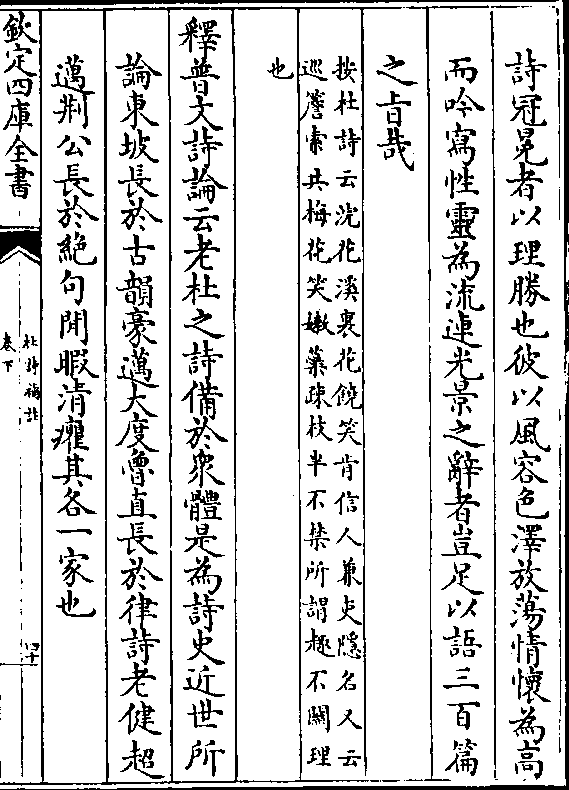 詩冠冕者以理勝也彼以風容色澤放蕩情懷為高
而吟寫性靈為流連光景之辭者豈足以語三百篇
之旨哉
按杜詩云浣花溪裏花饒笑肯信人兼吏隱名又云
巡簷索共梅花笑嫩蘂疎枝半不禁所謂趣不關理
也
釋普文詩論云老杜之詩備於衆體是為詩史近世所
論東坡長於古韻豪邁大度魯直長於律詩老健超
邁荆公長於絶句閒暇清癯其各一家也
欽定四庫全書
杜詩攟
卷下
四十